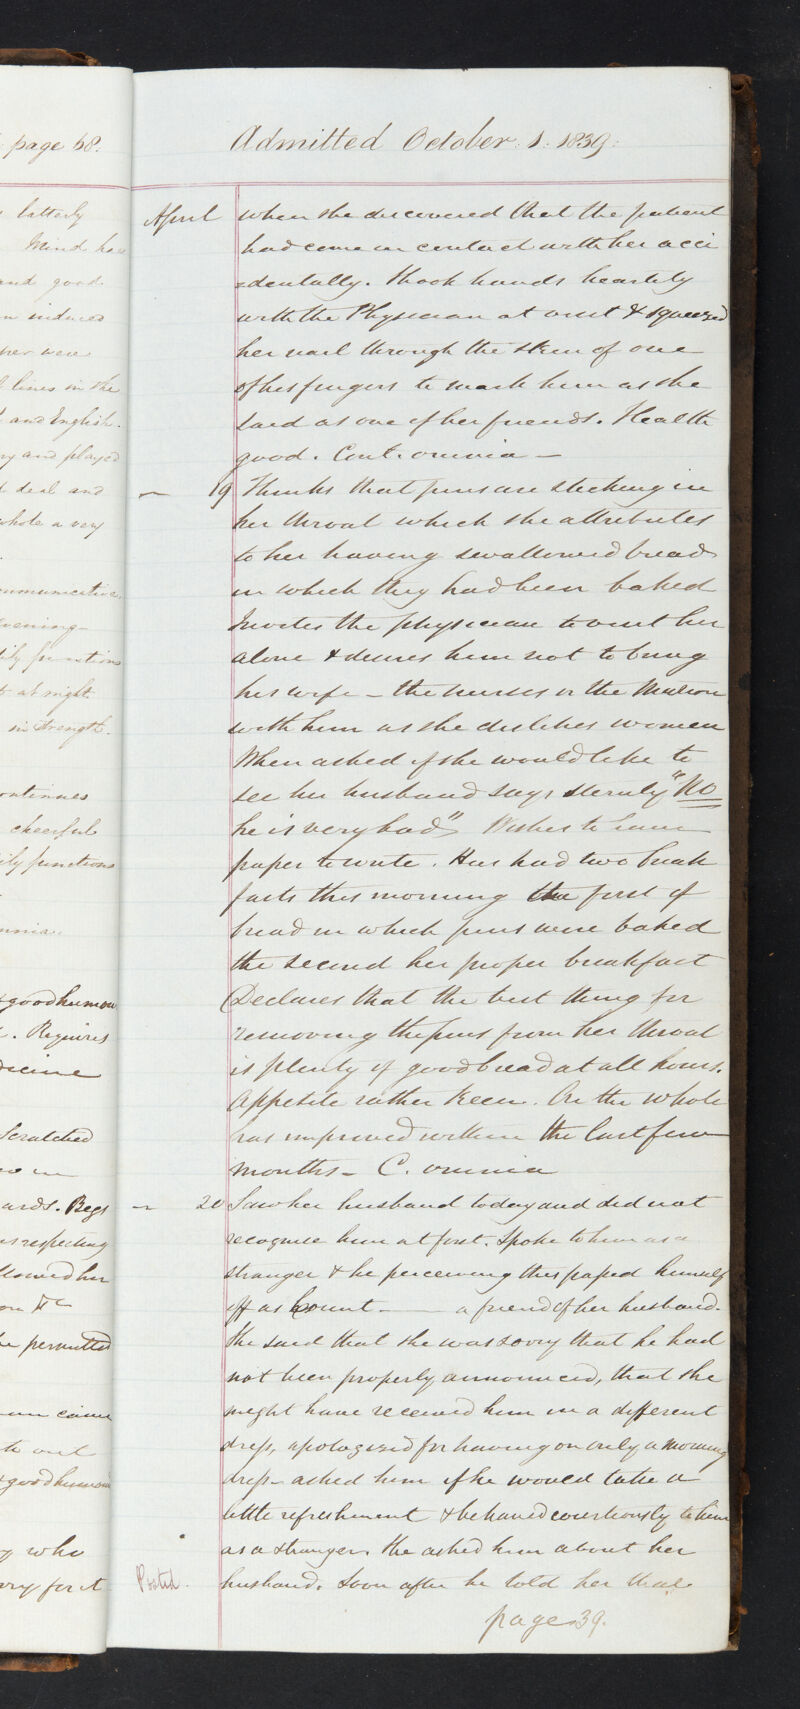 page 68.
latterly
Mind has
and good
induced
were
lines in the
and English.
and played
deal and
whole a very
communicative
evening
functions
at night.
in strength.
continues
cheerful
functions
omnia.
& good humour
Requires
medicine
Scratched
wards. Begs
respecting
allowed her
on &c
be permitted
came
out
& good humour
who
for it
Admitted October. 1. 1839.
April when she discovered that the patient
had come in contact with her acci
=dentally. Shook hands heartily
with the Physician at visit & squeezed
her nail through the skin of one
of his fingers to mark him as she
said as one of her friends. Health
good. Cont. omnia —
— 19 Thinks that pins are sticking in
her throat which she attributes
to her having swallowed bread
in which they had been baked
Invites the physician to visit her
alone & desires him not to bring
his wife — the nurses or the Matron
with him as she dislikes women
When asked if she would like to
see her husband says sternly "No
he is very bad" Wishes to have
paper to write. Has had two break
fasts this morning the first of
bread in which pins were baked
the second her proper breakfast
Declares that the best thing for
removing the pins from her throat
is plenty of good bread at all hours.
Appetite rather keen. On the whole
has improved within the last few
months — C. omnia
— 20 Saw her husband today and did not
recognise him at first. Spoke to him as a
stranger & he perceiving this passed himself
off as Count —— a friend of her husband.
She said that she was sorry that he had
not been properly announced, that she
might have received him in a different
dress, apologized for having on only a morning
dress — asked him if he would take a
little refreshment & behaved courteously to him
as a stranger. She asked him about her
Posted. husband. Soon after he told her that
page 39.